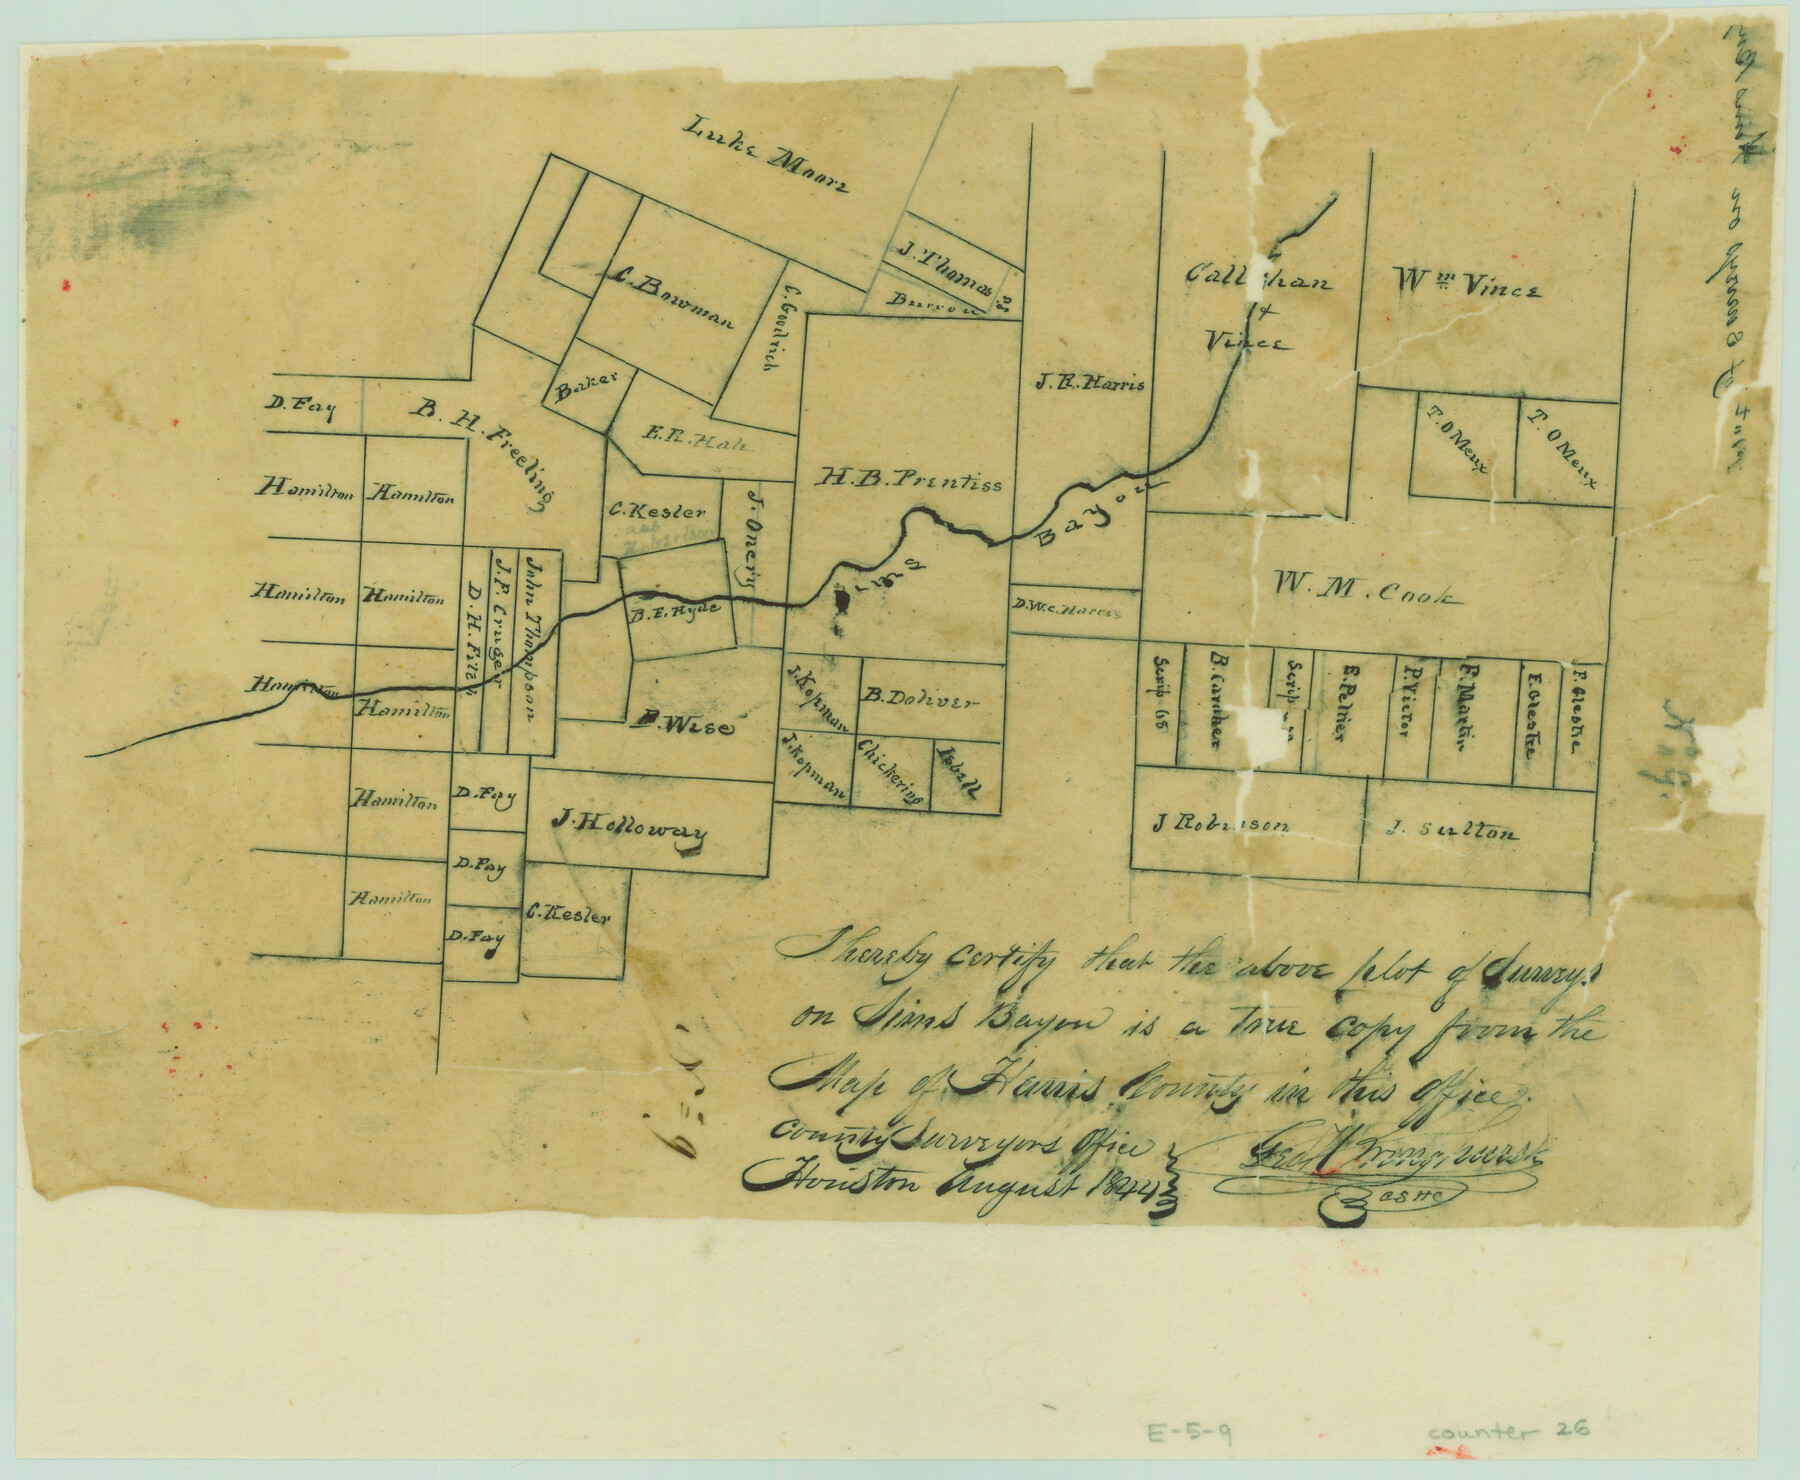 Luke Moore
J. Thomas
Burron
C. Bowman
C. Goodrich
Baker
E. R. Hale
D. Fay
B. H. Freeling
Hamilton
Hamilton
C. Kesler
J. Onery
H. B. Prentiss
J. R. Harris
Callahan
+
Vince
Wm Vince
T. O Meux
T. O Meux
Sims Bayou
Hamilton
Hamilton
D. H. Fitch
J. P. Cruger
John Thompson
B. E. Hyde
D. W. C. Harris
W. M. Cook
Hamilton
Hamilton
B. Wise
J. Kopman
B. Doliver
J. Kopman
Chickering
Isbell
Scrip 68
B. Caraher
Scrip
B. Peltier
P. Victor
P. Martin
E. Olestre
P. Olestre
Hamilton
D. Fay
J. Holloway
J Robinson
J. Sulton
Hamilton
D. Fay
C. Kesler
D. Fay
I hereby certify that the above plot of Surveys
on Sims Bayou is a true copy from the
Map of Harris County in this office.
County Surveyors Office
Houston August 1844
CSHC
E-5-9
counter 26